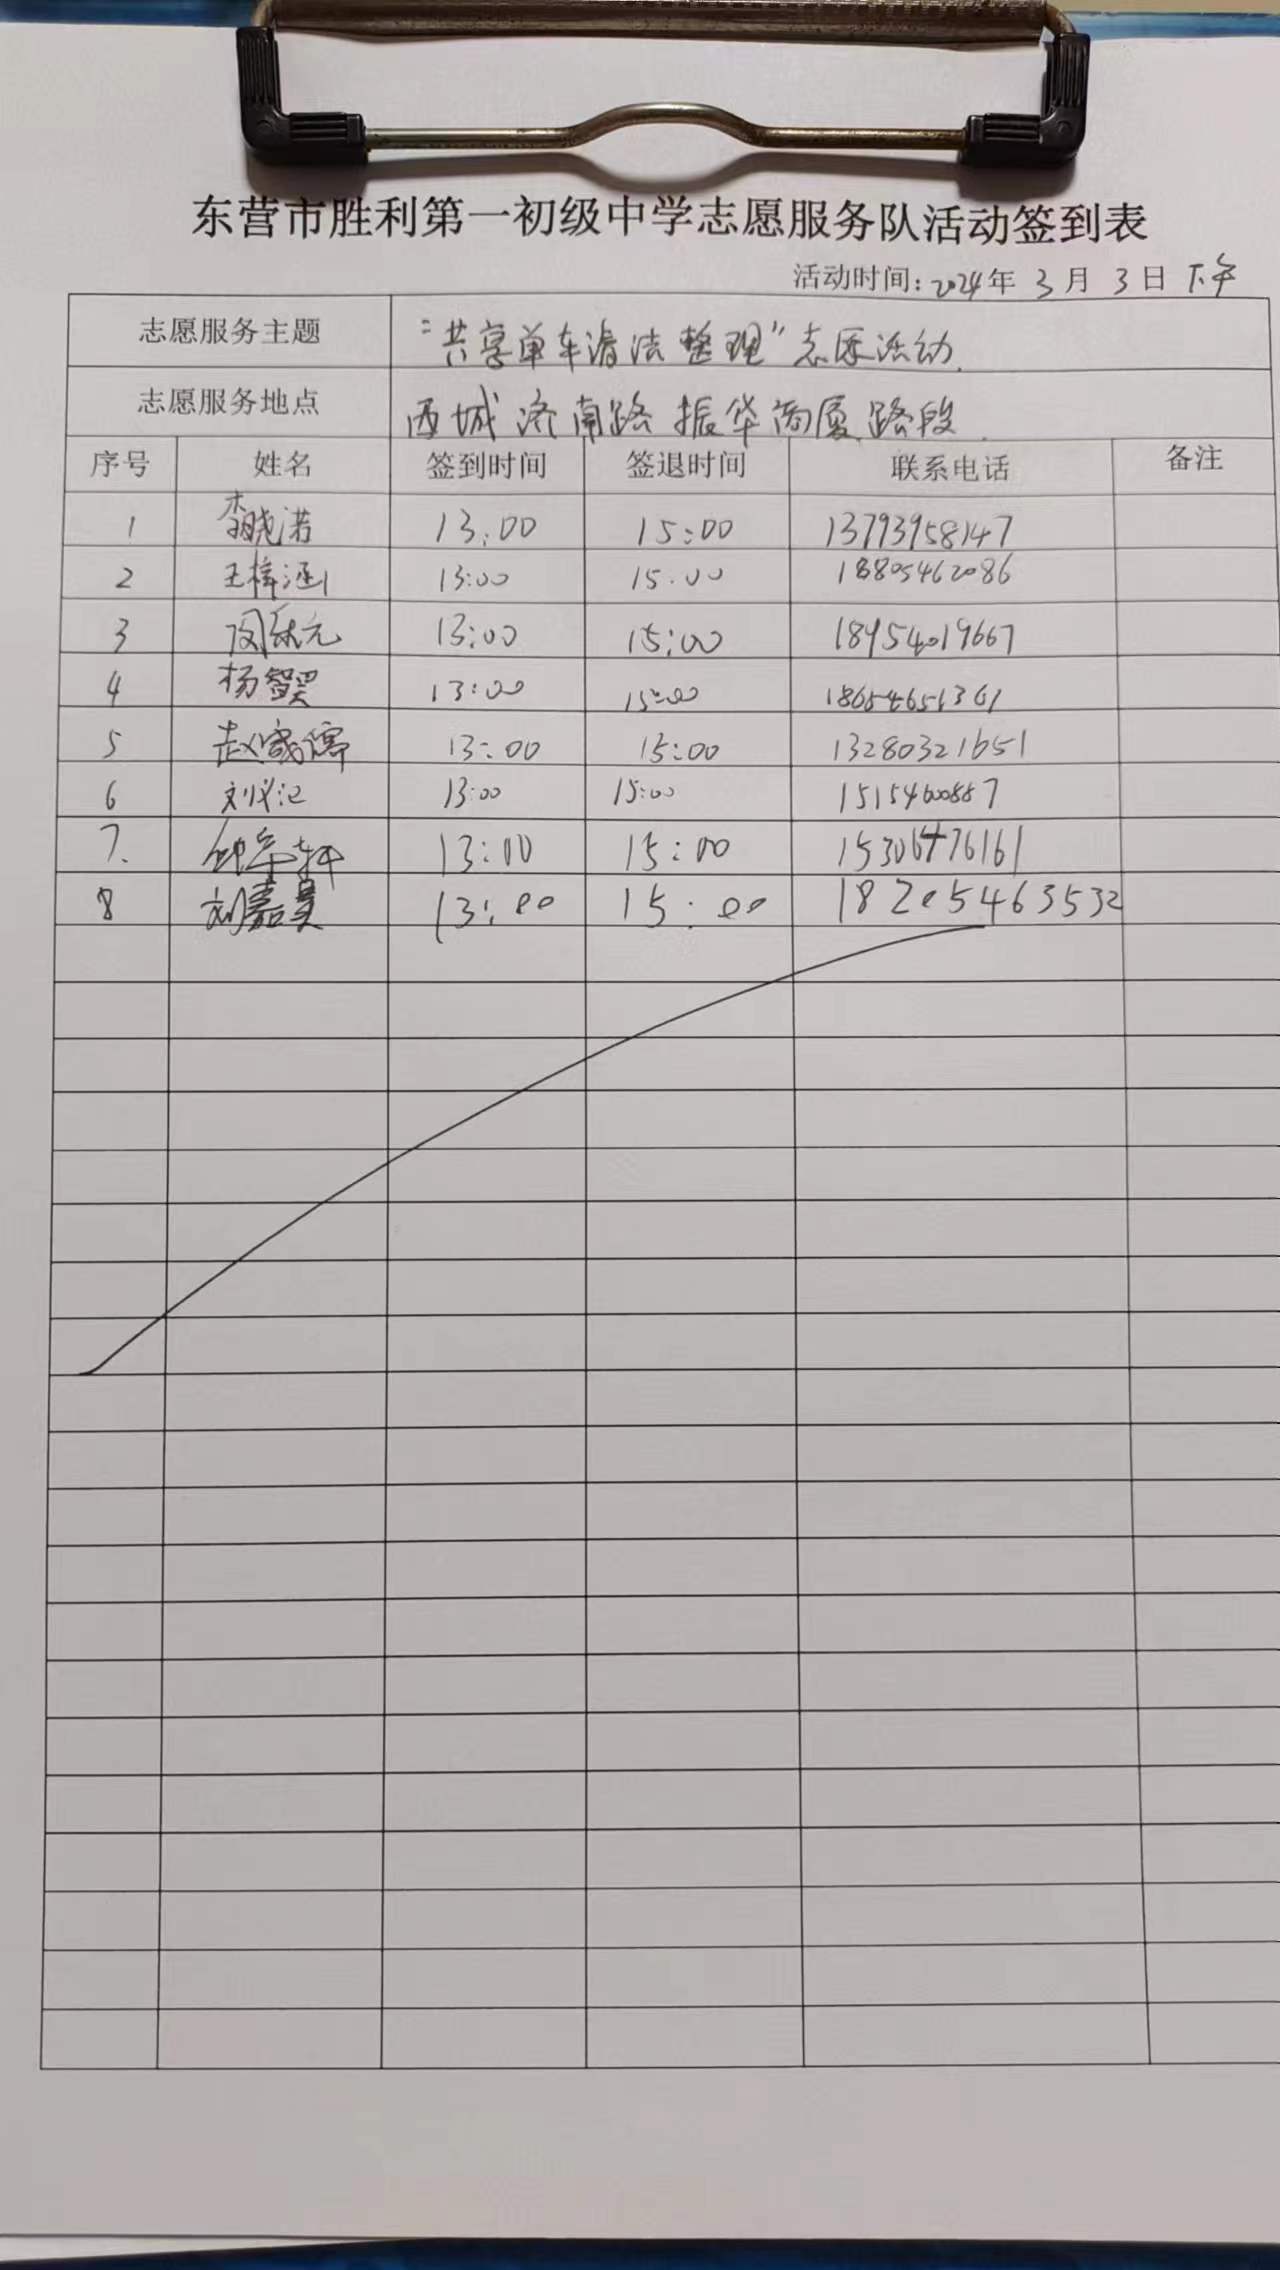 东营市胜利第一初级中学志愿服务队活动签到表
活动时间：2024年 3月 3日 下午
志愿服务主题 “共享单车清洁整理”志愿活动
志愿服务地点 西城济南路振华商厦路段
序号 姓名 签到时间 签退时间 联系电话 备注
1 李晓诺 13:00 15:00 13793958147
2 王梓涵 13:00 15:00 18805462086
3 13:00 15:00 18954019667
4 杨智昊 13:00 15:00 18654651361
5 赵 13:00 15:00 13280321651
6 刘 13:00 15:00 15154600887
7. 轩 13:00 15:00 15306476161
8 刘嘉昊 13:00 15:00 18205463532